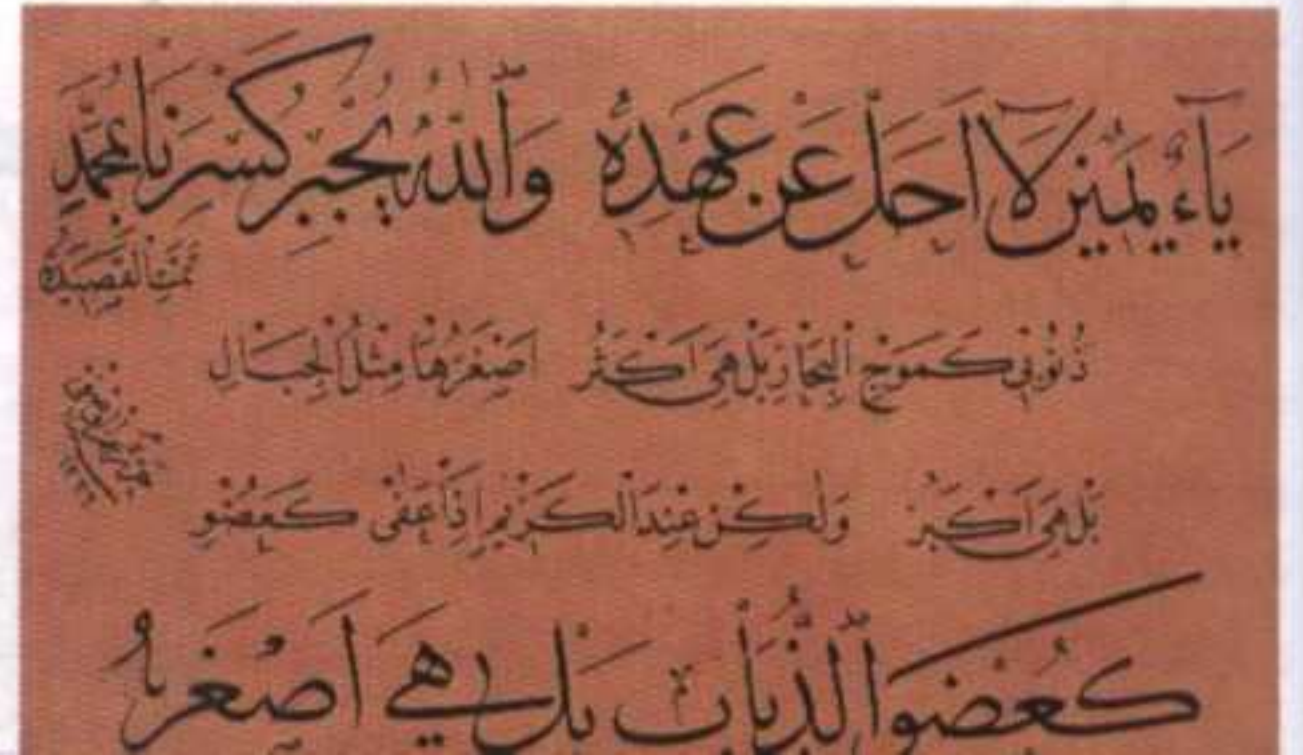 يَاءُ يَمِينٍ لَآ اَحَلَّ عَنْ عَهْدِهِ وَاللّٰهُ يَجْبُرُ كَسْرَنَا بِمُحَمَّدِ
تَمَّتِ الْقَصِيدَةُ
ذُنُوبِي كَمَوْجِ الْبِحَارِ بَلْ هِيَ اَكْثَرُ اَصْغَرُهَا مِثْلُ الْجِبَالِ
بَلْ هِيَ اَكْبَرُ وَلٰكِنْ عِنْدَ الْكَرِيمِ اِذَا عَفٰى كَعُضْوِ
كَعُضْوِ الذُّبَابِ بَلْ هِيَ اَصْغَرُ